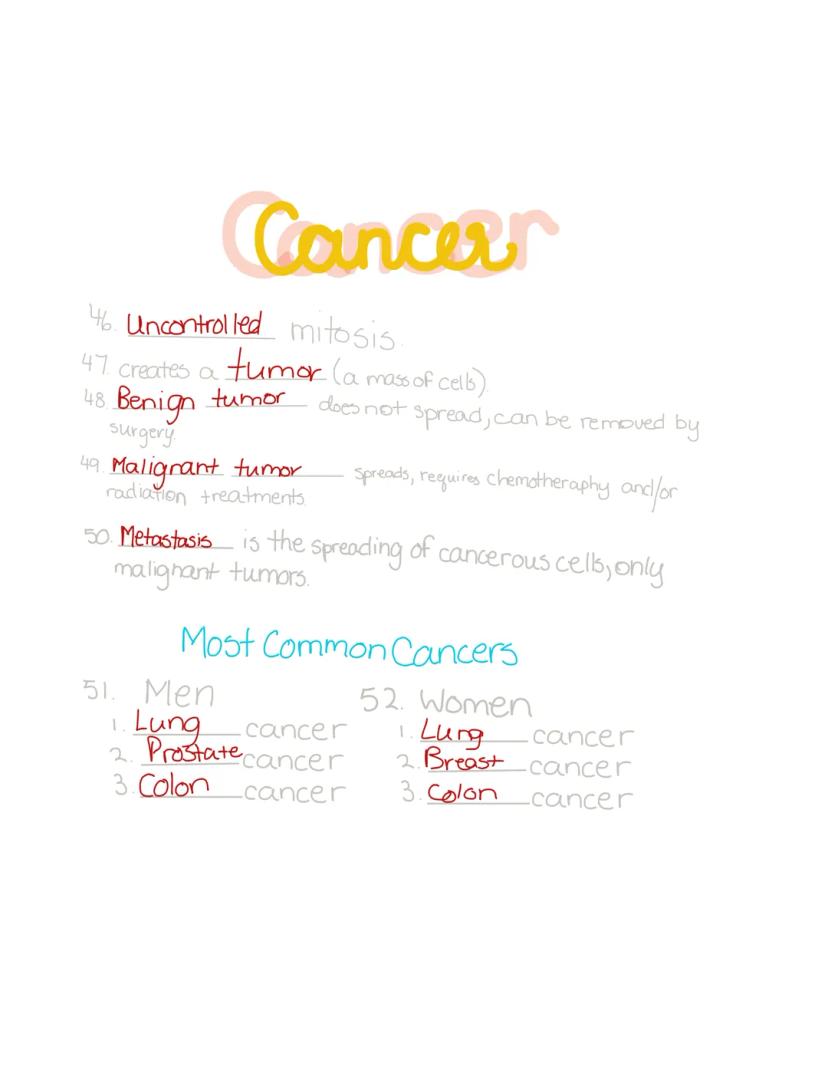 Cancer
46. Uncontrolled mitosis.
47. creates a tumor (a mass of cells).
48. Benign tumor does not spread, can be removed by
surgery.
49. Malignant tumor spreads, requires chemotheraphy and/or
radiation treatments.
50. Metastasis is the spreading of cancerous cells, only
malignant tumors.
Most Common Cancers
51. Men
1. Lung cancer
2. Prostate cancer
3. Colon cancer
52. Women
1. Lung cancer
2. Breast cancer
3. Colon cancer